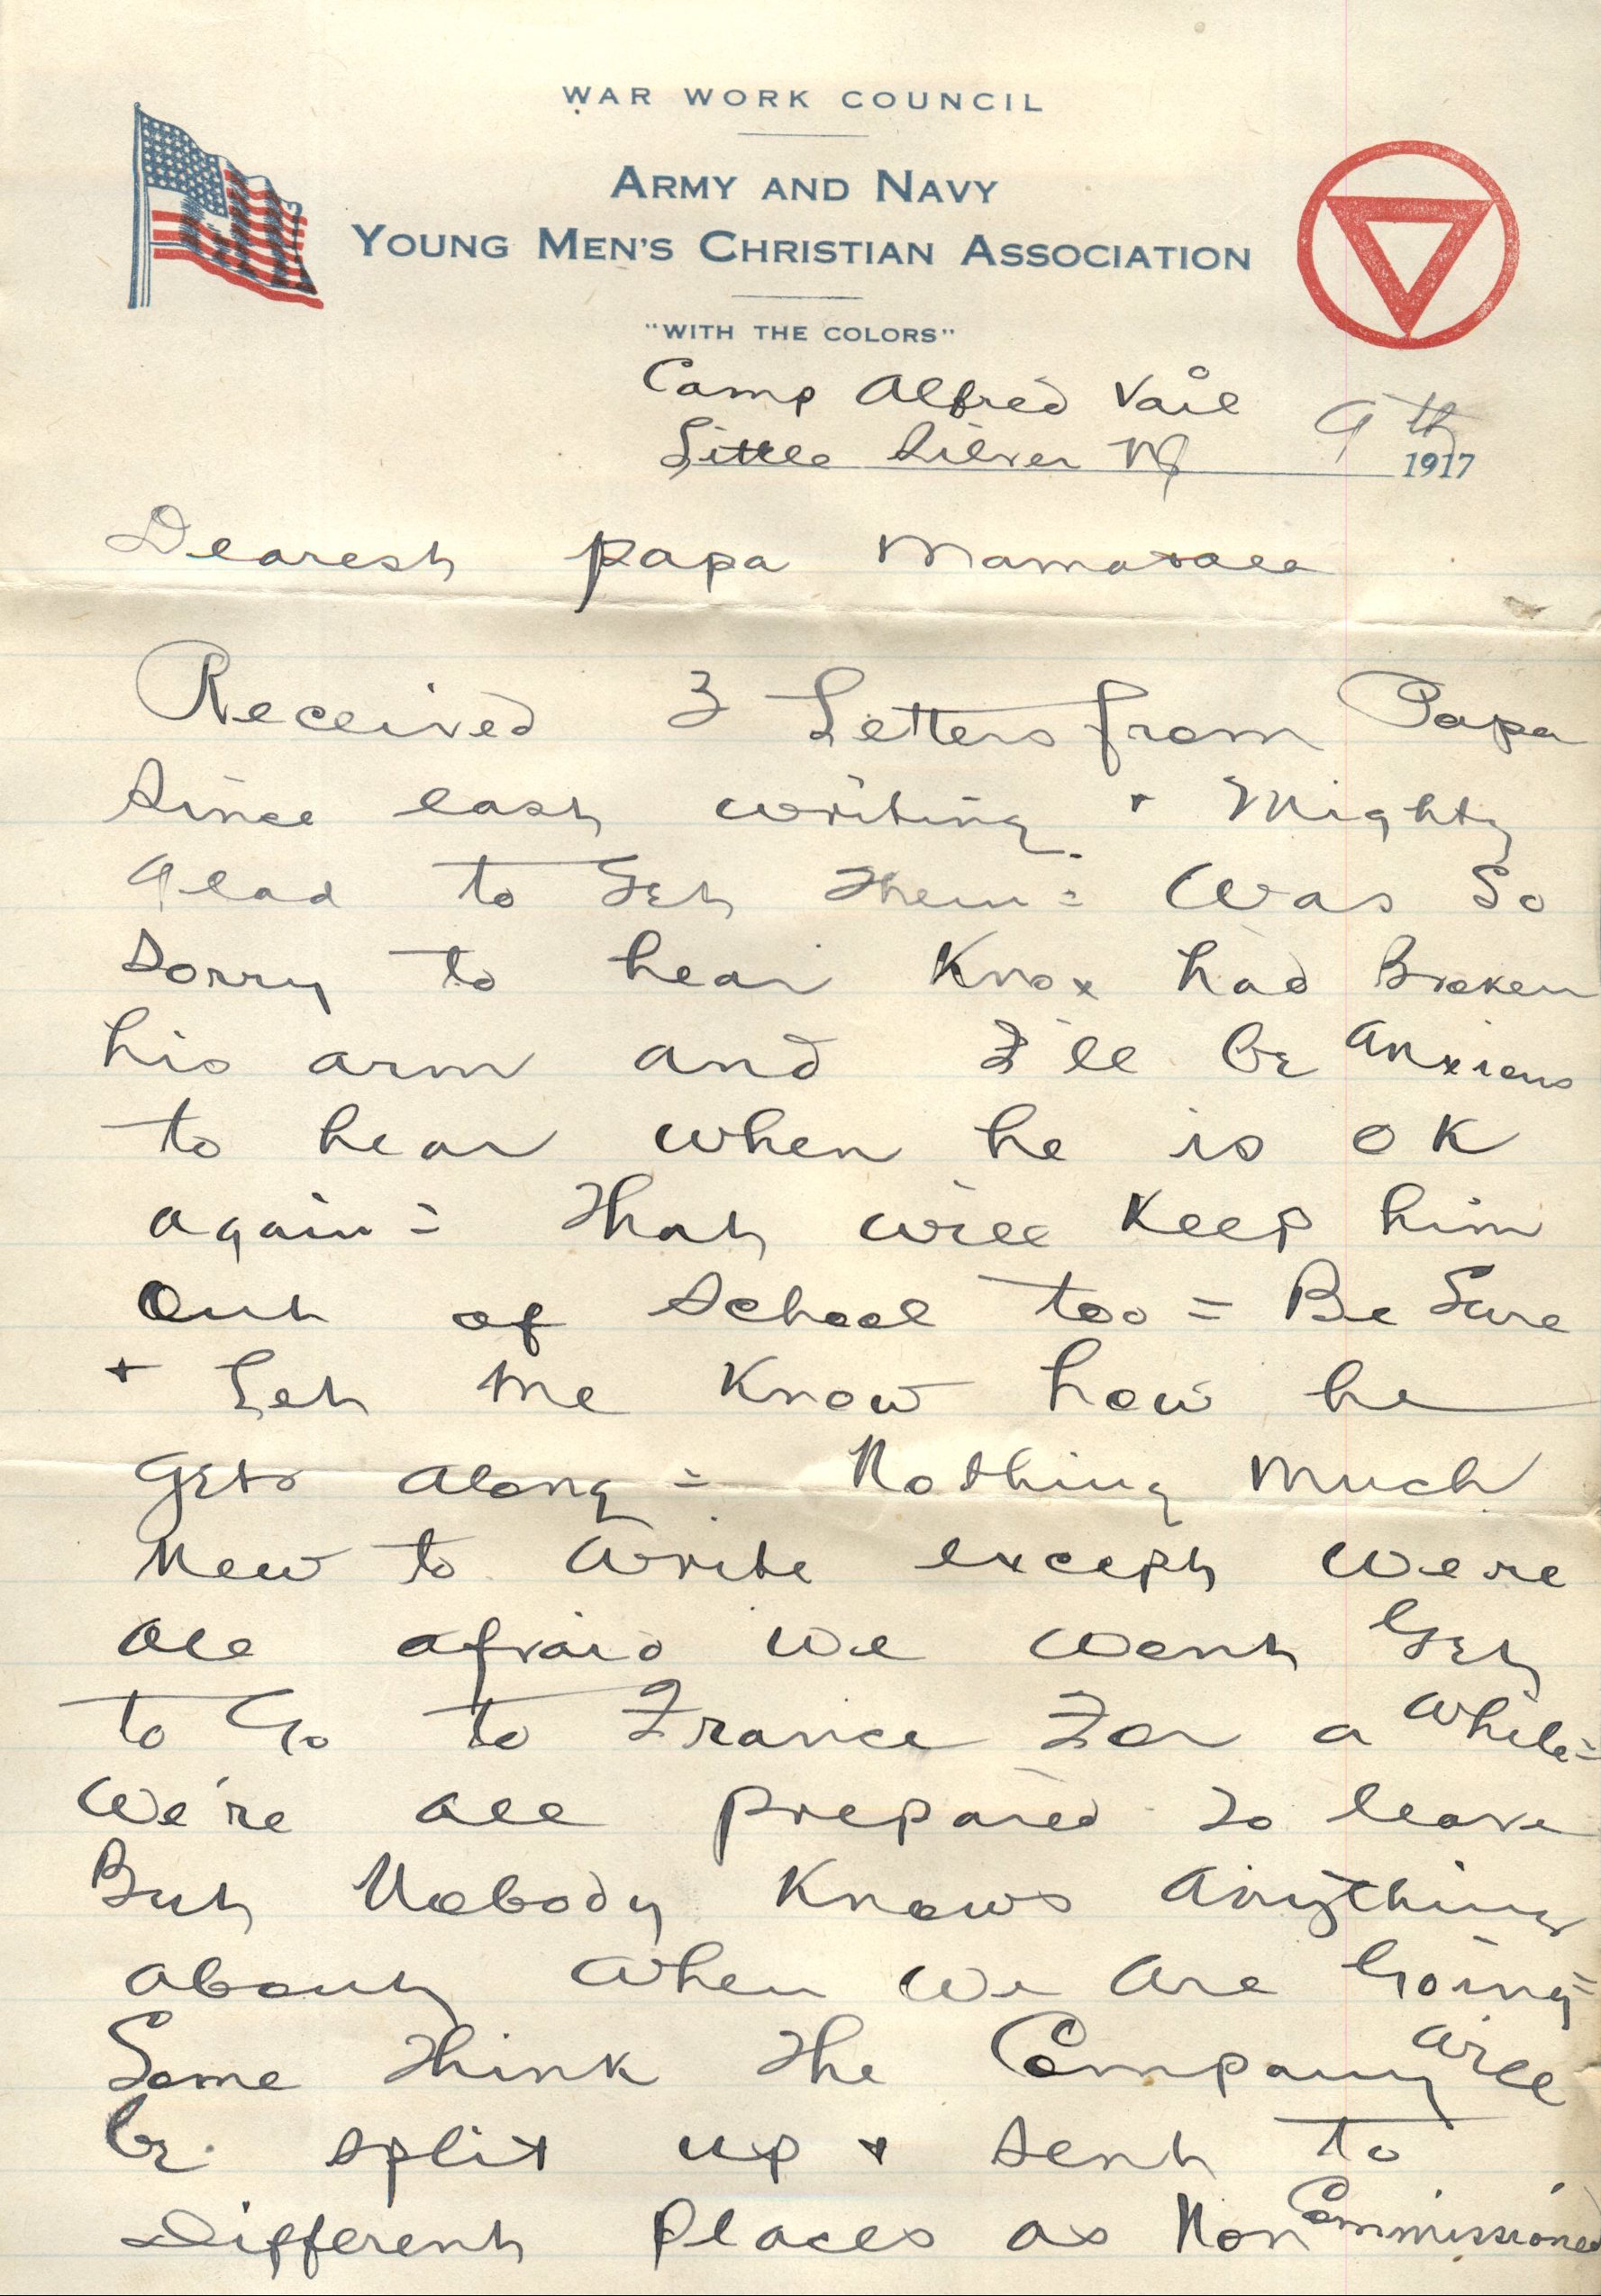 WAR WORK COUNCIL
ARMY AND NAVY
YOUNG MEN'S CHRISTIAN ASSOCIATION
"WITH THE COLORS"
Camp Alfred Vail
Little Silver NJ 9th 1917
Dearest Papa Mama & all
Received 3 Letters from Papa
Since last writing & Mighty
glad to Get them = Was So
Sorry to hear Knox had Broken
his arm and I'll be anxious
to hear when he is OK
again = That will Keep him
Out of School too = Be Sure
& Let Me Know how he
gets along = Nothing Much
New to Write except We're
all afraid we wont Get
to Go to France For a While =
We're all prepared to leave
But Nobody Knows Anything
about When We Are Going =
Some think the Company will
be split up & Sent to
Different Places as Non Commissioned